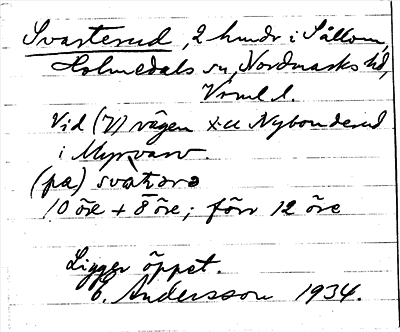 Svarterud, 2 hundr i Sållom,
Holmedals sn, Nordmarks hd,
Vrml l.
Vid (V) vägen Nybonderud
i Myrvarv.
(på)
10 öre + 8 öre; förr 12 öre
Ligger öppet.
O. Andersson 1934.